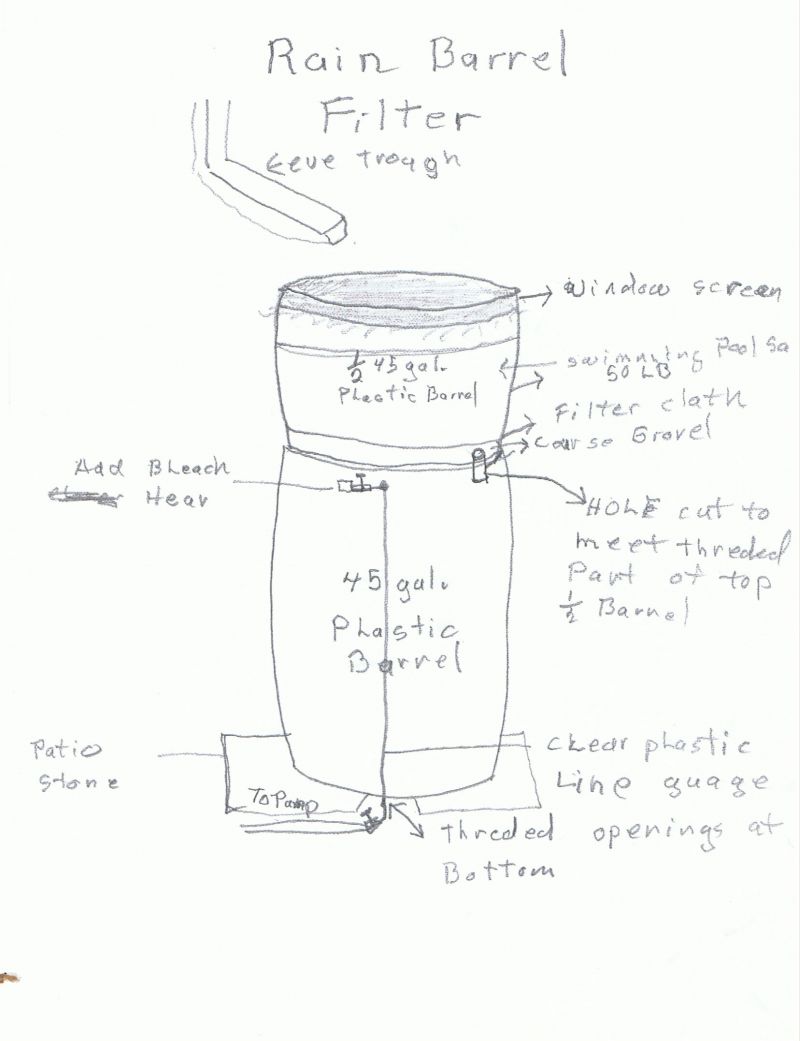 Rain Barrel
Filter
Eeve trough
Window screen
1/2 45 gal.
Plastic Barrel
swimming Pool Sa
50 LB
Filter cloth
Course Gravel
Add Bleach
Hear
HOLE cut to
meet threded
Part of top
1/2 Barrel
45 gal.
Plastic
Barrel
Patio
stone
To Pump
clear plastic
Line guage
threded openings at
Bottom